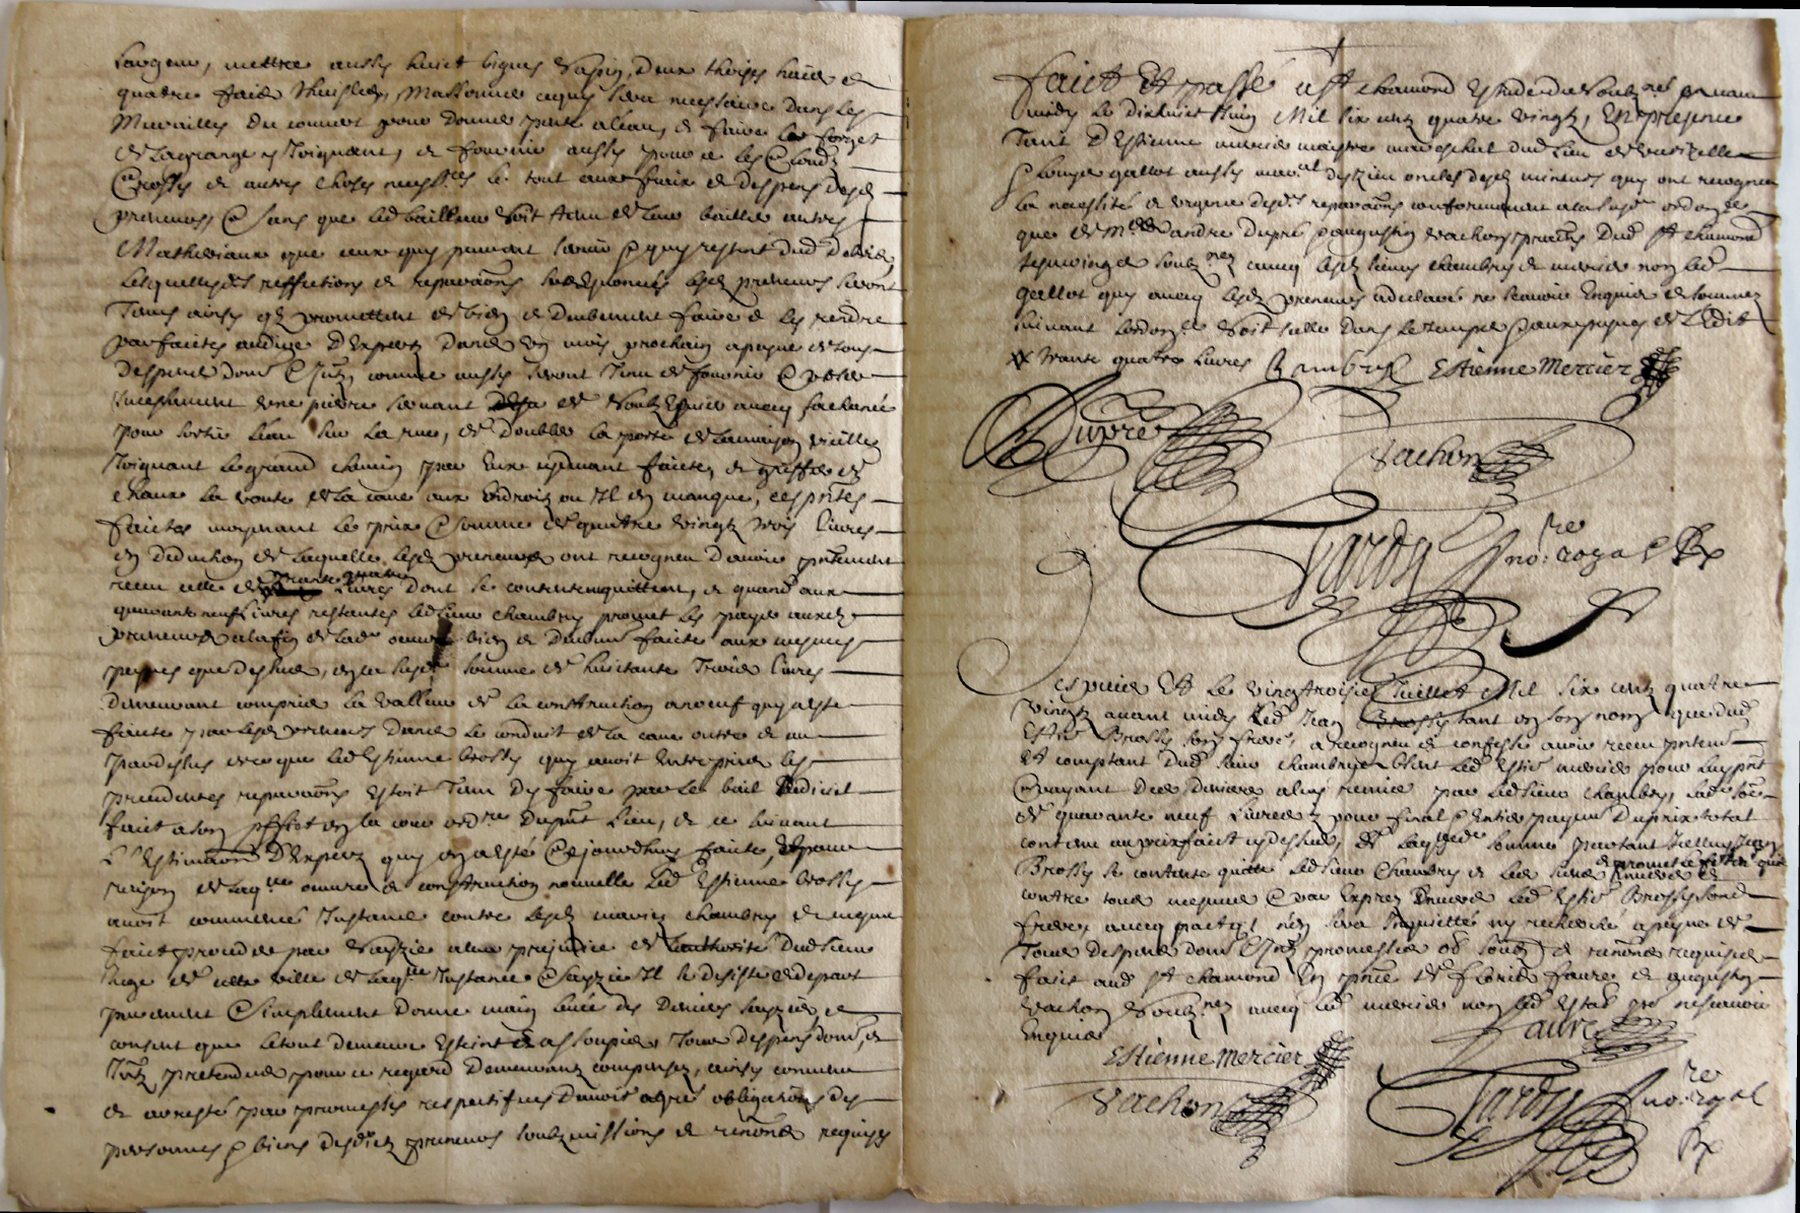 Largeur, mettre aussy huict lignes sapin, deux thoises haut et
quatre faict thuisles, massonner ce quy sera necessaire dans les
murailles du couvert pour donner pente a l'eau, et faire le forget
de la grange y joignant, et fournir aussy pour ce les clouds
crosses et autres choses necess.res le tout aux fraix et despens desd
preneurs, sans que led bailleur soit tenu de leur bailler autres
Matheriaux que ceux quy peuvent servir quy restent dud
Lesquelles d. reffections et reparaons lesd preneurs seront
Tenus ainsy qz promettent de bien et deubement faire & les rendre
parfaictes au dire d'Expertz dans un mois prochain a peyne de tous
despens dom. Intz, comme aussy seront tenu de fournir & poser
une pierre servant de avec
pour sortir l'eau sur la rue, de doubler la porte de la maison vieille
Joignant le grand chemin par eux cydevant faicte, et de
chaux la voute de la cave aux endroitz ou Il en manque, ces pntes
faictes moyenant le prix & somme de quatre vingtz trois livres
en deduction de laquelle lesd preneurs ont recogneu d'avoir pntement
receu celle de trante quatre livres dont se contentent quittent, et quand aux
quarante neuf livres restantes led sieur chambeyr promet les payer auxd
preneurs a la fin de lad oeuvre bien et deuem faicte aux mesmes
peynes que dessus, en la susd somme de huictante Trois livres
demeurant comprise la valleur de la construction a neuf quy a esté
faicte par lesd preneurs dans le conduit de la cave outre et
pardessus ce que led Estienne brossy quy avoit entreprise les
precedentes reparaons estoit tenu de faire par le bail judiciel
faict a son proffict en la cour ord.re du pnt lieu, et ce suivant
L'Estimaon d'Expertz quy en a esté cejourdhuy faicte, & pour
raison de laq.lle oeuvre et construction nouvelle led Estienne brossy
avoit commencé Instance contre lesd mariez chambeyr et mesme
faict proceder par sayzie a leur prejudice de l'authorité dud sieur
Juge de cette ville de laq.lle Instance & sayzie Il se desiste & depart
purement & simplement donne main levée des deniers sayzis, et
consent que le tout demeure esteint & assoupi, tous despens dom, et
Intz pretendus pour ce regard demeurantz compensez, ainsy convenu
et arresté par promesses respectifves d'avoir agrée obligations des
personnes & biens desdictz preneurs soubzmissions et renonce requises
faict Et passé a St chamond Estude du soubz.né avant
midy le dixhuict Juin Mil six centz quatre vingtz, En presence
Tant d'Estienne mercier maistre mareschal dud lieu de
& Louys gallot aussy mar.al d'Izieu oncles desd mineurs quy ont recogneu
la necessité et urgence desd reparaons conformement a la susd ordon.ce
que de M.es andre dupré & augustin vachon praciens dud St chamond
tesmoings soubz.nez avecq lesd sieurs chambeyr & mercier non led
gallot quy avecq lesd preneurs a declaré ne scavoir Enquis et sommez
suivant l'ordon.ce soit sellé dans le temps & aux peynes de l'Edit
XX trante quatre livres Chambeyr Estienne Mercier
Dupré
Vachon
Jardy no.re royal
Depuis Et le vingtroisie Juillet Mil six centz quatre
vingtz avant midy led Jean brossy tant en son nom que dud
Est.e Brossy son frere, a recogneu et confessé avoir receu pntem
Et comptant dud sieur chambeyr led Est.e mercier pour luy pnt
& ayant ded deniers a luy remis par led sieur chambeyr, lad so.e
de quarante neuf Livres pour final & entier payem du prix total
contenu au prixfaict cy dessus, de laq.lle somme partant
Brossy se contente quitte led sieur chambeyr et led sieur mercier et promet
contre tous mesme par Expres envers led Est.e Brossy son
frere avecq pacte qz n'en sera Inquietté ny recherché a peyne de
Tous despens dom. Intz promesses ob. soubz. et renon.ce requises
faict aud St chamond En pnce de florid faure et augustin
vachon soubz.nez avecq led mercier non led pour ne scavoir
Enquis
faure
Estienne Mercier
Vachon
Jardy no.re royal